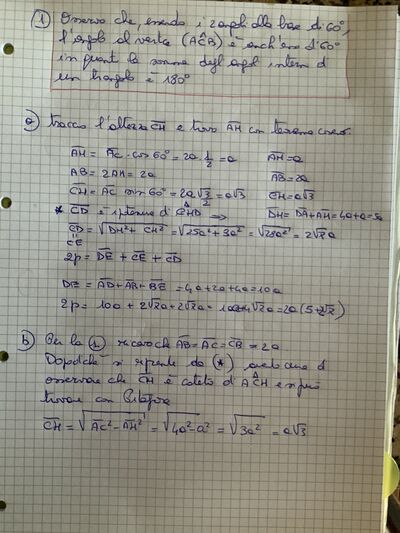 ① Osservo che essendo i 2 angoli alla base di 60°,
l'angolo al vertice (AĈB) è anch'esso di 60°
in quanto la somma degli angoli interni di
un triangolo è 180°
a) traccio l'altezza CH e trovo AH con teorema
AH = AC · cos 60° = 2a · 1/2 = a AH = a
AB = 2AH = 2a AB = 2a
CH = AC sin 60° = 2a √3/2 = a√3 CH = a√3
* CD è ipotenusa di CHD ⇒ DH = DA + AH = 4a + a = 5a
CD = √DH² + CH² = √25a² + 3a² = √28a² = 2√7a
CE
2p = DE + CE + CD
DE = AD + AB + BE = 4a + 2a + 4a = 10a
2p = 10a + 2√7a + 2√7a = 10a + 4√7a = 2a (5 + 2√7)
b) Per la ① ricavo che AB = AC = CB = 2a
Dopodiché si riprende da (*) avendo cura di
osservare che CH è cateto di ACH e si può
trovare con Pitagora
CH = √AC² - AH² = √4a² - a² = √3a² = a√3